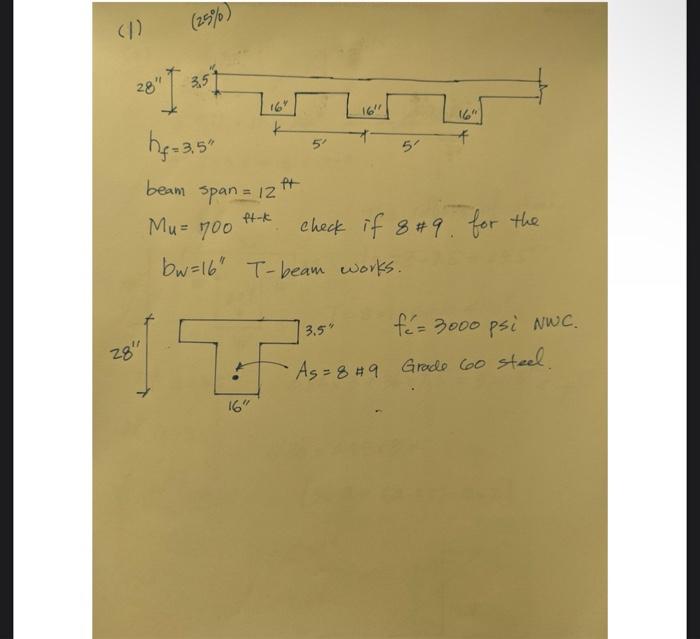 (1) (25%)
28" 3.5"
16" 16" 16"
5' 5'
hf = 3.5"
beam span = 12 ft
Mu = 700 ft-k check if 8 #9. for the
bw=16" T-beam works.
3.5" fc' = 3000 psi NWC.
28"
As = 8 #9 Grade 60 steel.
16"